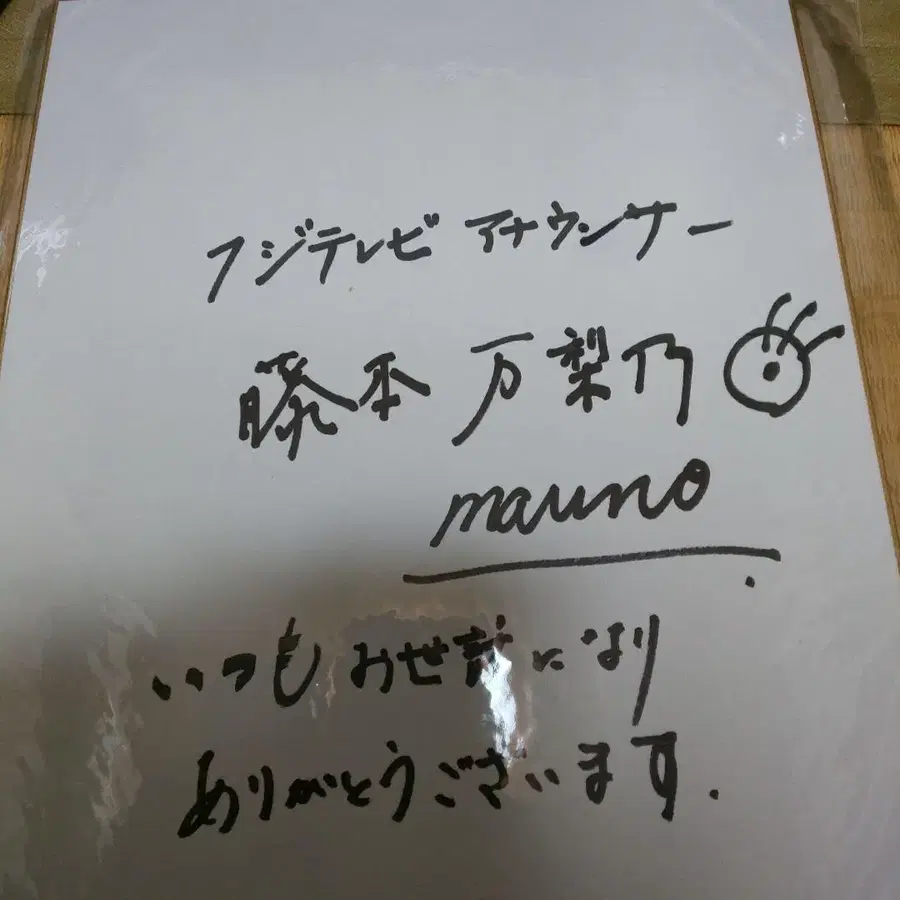 フジテレビ アナウンサー
藤本 万梨乃
marino
いつもお世話になり
ありがとうございます.